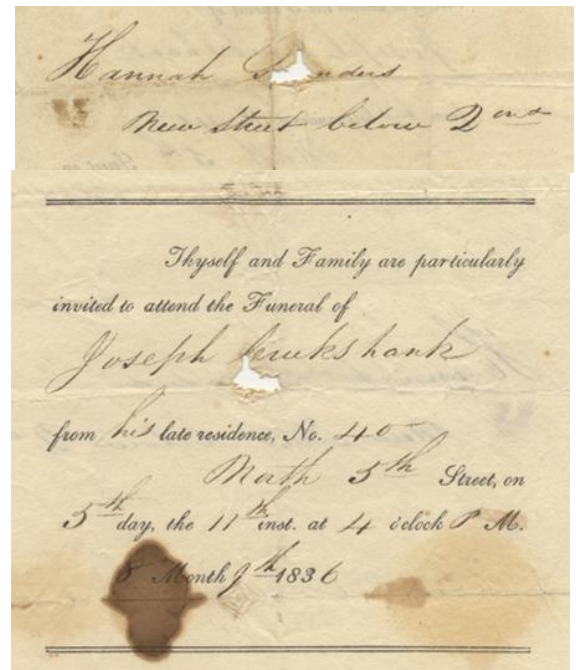 Hannah
New Street below 2nd
Thyself and Family are particularly
invited to attend the Funeral of
Joseph Crukshank
from his late residence, No. 40
North 5th Street, on
5th day, the 11th inst. at 4 o'clock P M.
8 Month 9th 1836